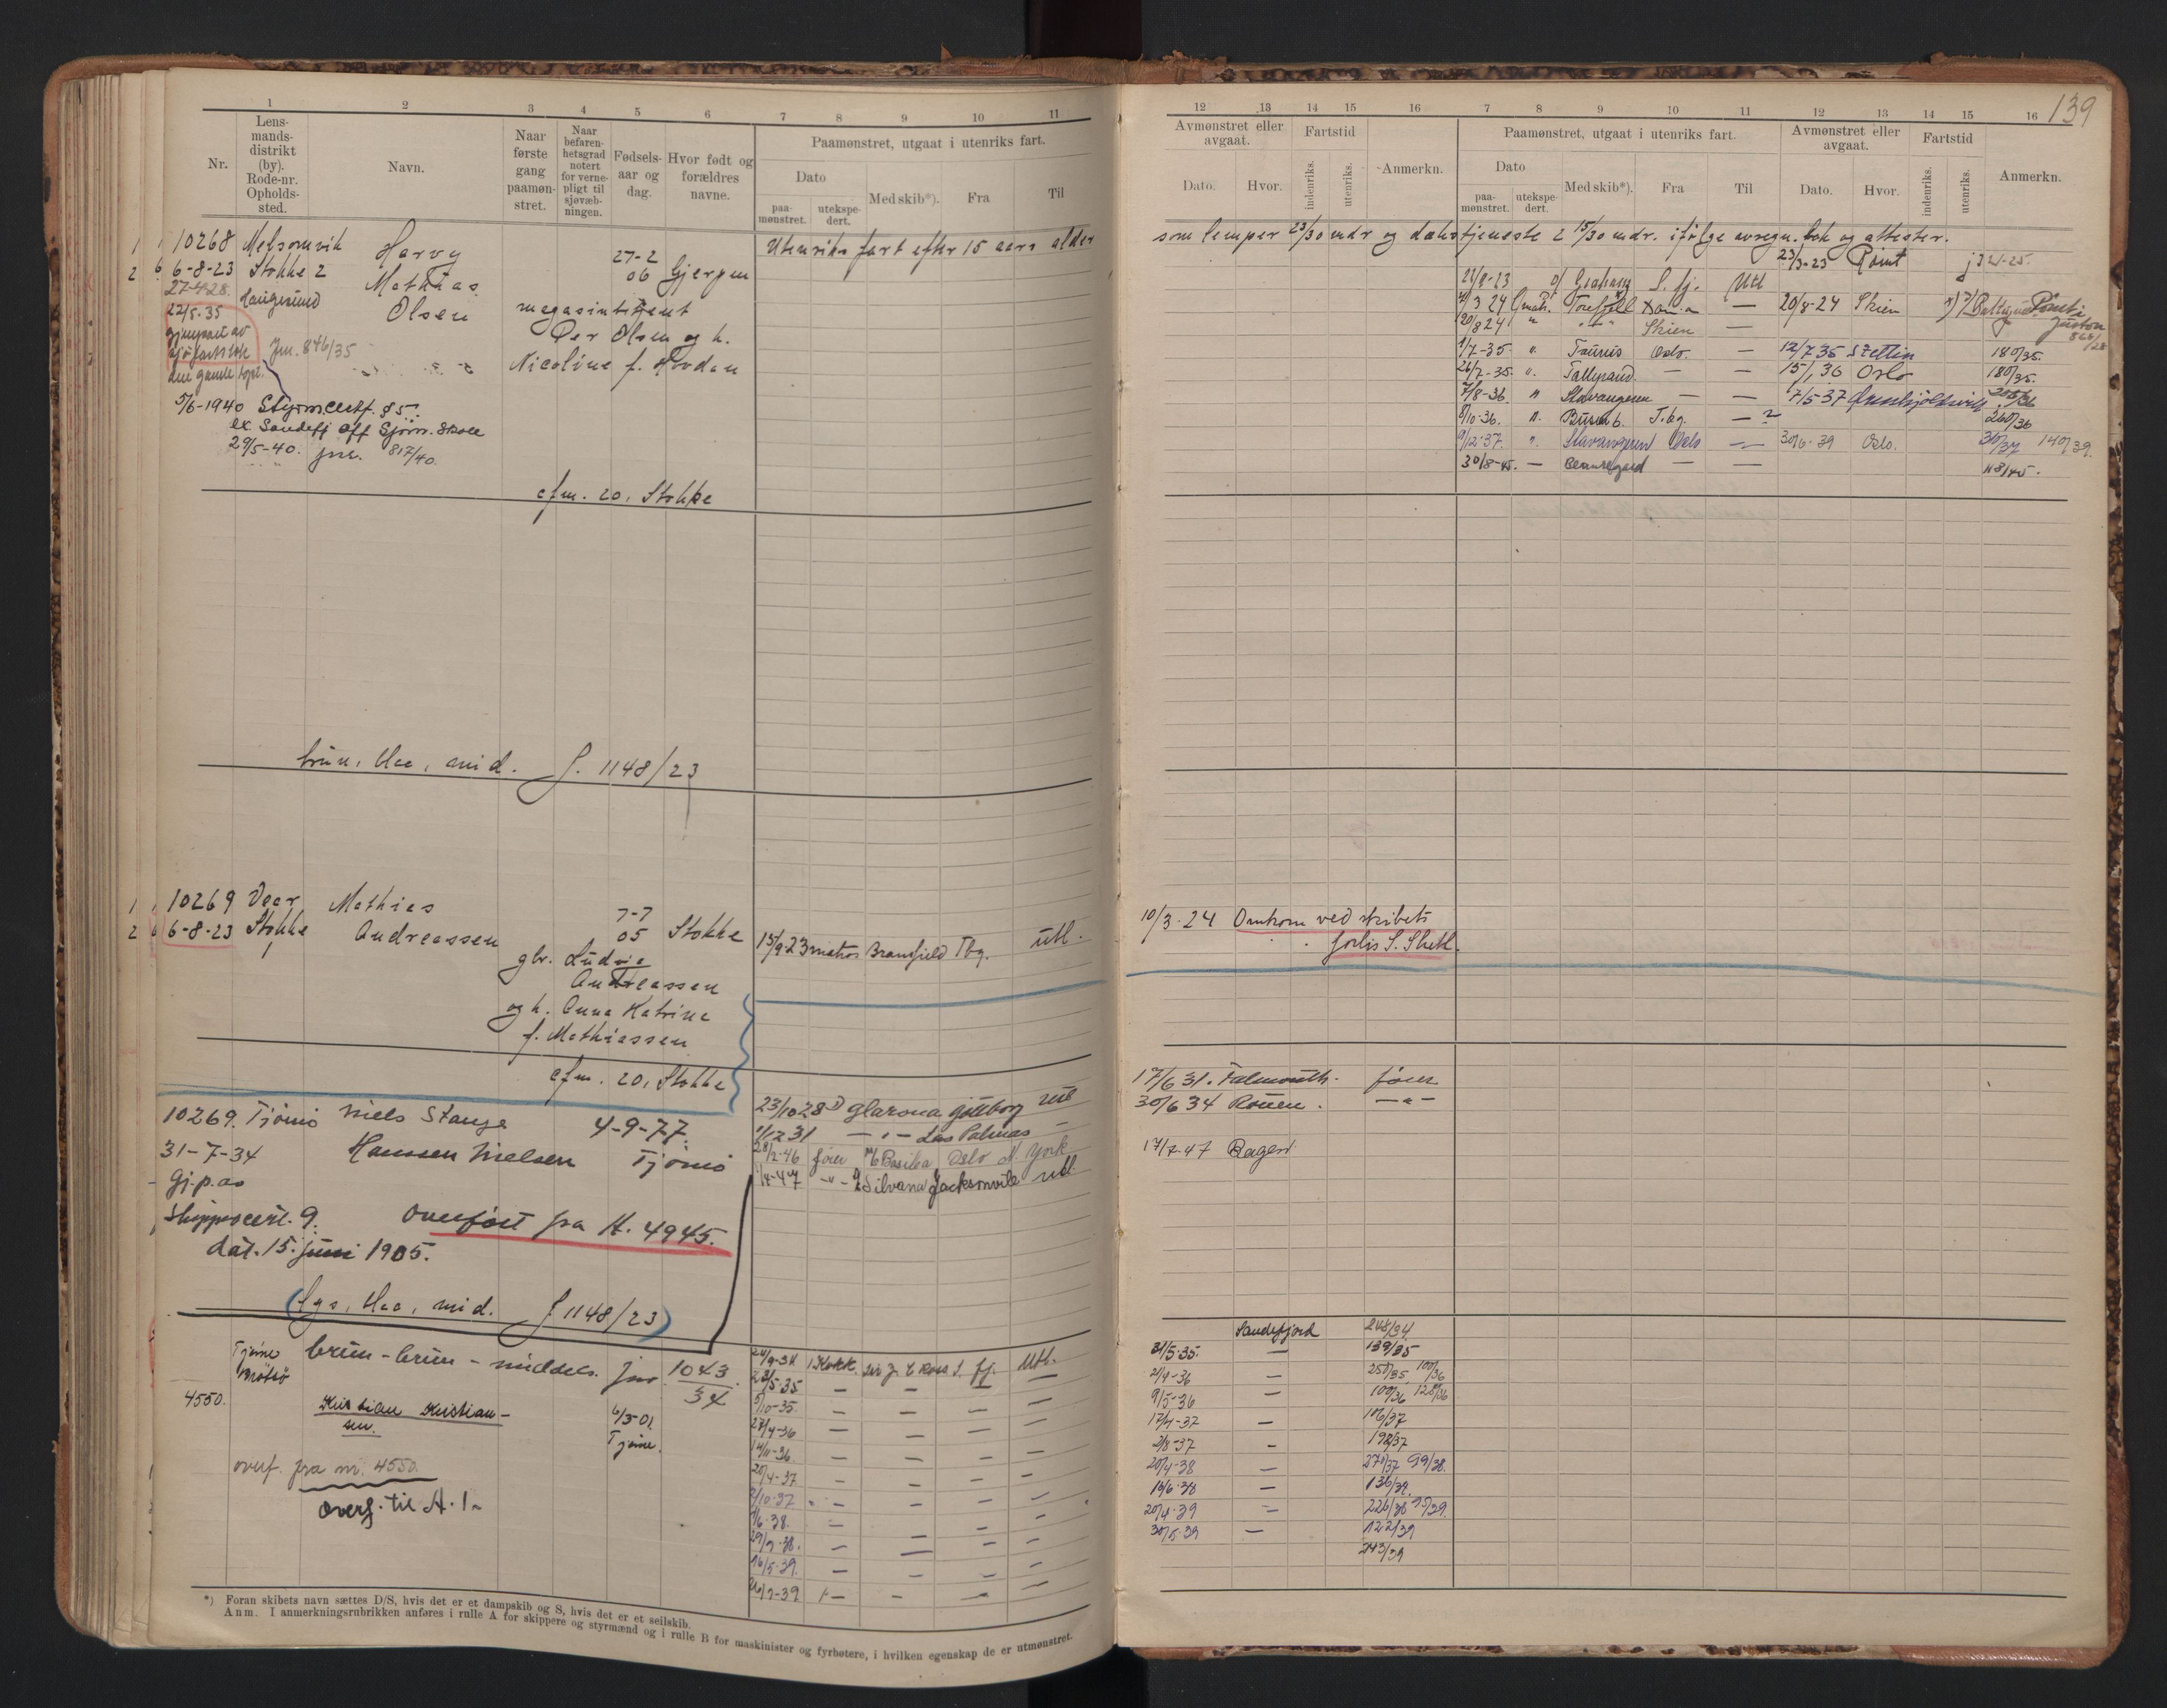 139
1 2 3 4 5 6 7 8 9 10 11
Nr.
Lens-
mands-
distrikt
(by).
Rode-nr.
Opholds-
sted.
Navn.
Naar
første
gang
paamøn-
stret.
Naar
befaren-
hetsgrad
notert
for verne-
pligt til
sjøvæb-
ningen.
Fødsels-
aar og
dag.
Hvor født og
forældres
navne.
Paamønstret, utgaat i utenriks fart.
Dato
paa-
mønstret.
utekspe-
dert.
Med skib*).
Fra
Til
1 10268 Melsomvik Harvy 27-2 Utenriks fart efter 15 aars alder
2 6-8-23 Stokke 2 Mathias 06 Gjerpen
27-4-28. Haugesund Olsen magasinbetjent
22/5.35 Per Olsen og h.
gjenpart av
sjøfartsbok Jnr. 846/35 Nicoline f. Hovdan
den gamle tapt.
5/6-1940 Styrm.certf. § 5.
ex. Sandefj off Sjøm. skole
29/5-40. jnr. 817/40.
cfm. 20, Stokke
brun, blaa, mid. J. 1148/23
1 10269 Vear Mathias 7-7
2 6-8-23 Stokke Andreassen 05 Stokke 15/9.23 matros Bramfield Tbg. utl.
gbr. Ludvig
Andreassen
og h. Anna Katrine
f. Mathiassen
cfm. 20, Stokke
10269. Tjømø Niels Stange 4-9-77. 23/10 28 Glarona Gøteborg utl
31-7-34 Hanssen Nielsen Tjømø 1/12 31 — " — Las Palmas —
Gj.p.as 28/2-46 fører M/ Basilea Oslo N York
1/4-47 — " — Silvana Jacksonvile utl
Skippscert. 9. overført fra H. 4945.
dat. 15. juni 1905.
(lys, blaa, mid. J 1148/23)
Tjøme brun - brun - middels. jnr 1043/34 24/9-34 Kokk. Sir J. C Ross S. fj. Utl.
28/5-35 — — — —
4550. Kristian Kristian- 6/3-01 5/10-35. — — — —
sen. Tjøme. 28/4-36 — — — —
14/11-36. — — — —
overf. fra nr. 4550 20/4-37 — — — —
overf. til A. 1- 8/10-37 — — — —
1/6-38. — — — —
29/9-38. — — — —
16/5-39. — — — —
— — — —
*) Foran skibets navn sættes D/S, hvis det er et dampskib og S, hvis det er et seilskib.
Anm. I anmerkningsrubrikken anføres i rulle A for skippere og styrmænd og i rulle B for maskinister og fyrbøtere, i hvilken egenskap de er utmønstret.
12 13 14 15 16 7 8 9 10 11 12 13 14 15 16
Avmønstret eller
avgaat.
Fartstid
Dato. Hvor.
indenriks.
utenriks.
Anmerkn.
Paamønstret, utgaat i utenriks fart.
Dato
paa-
mønstret.
utekspe-
dert.
Med skib*).
Fra
Til
Avmønstret eller
avgaat.
Dato. Hvor.
Fartstid
indenriks.
utenriks.
Anmerkn.
som lemper 23/30 mdr og dækstjeneste 2 15/30 mdr. ifølge avregn. bok og attester.
23/3-23
S. fj. Utl
3 24 Torefjell — 20/8-24 Skien
20/8 24 " — " — Skien —
1/7-35 " Taurus Oslo. — 12/7 35 Stettin 180/35.
26/7-35. " Talleyrand. — — 15/1 36 Oslo 180/35.
7/8-36. " Stavangeren — — 7/5-37
8/10-36. " T.bg. — 260/36
9/12-37. " Stavangeren Oslo — 30/6-39 Oslo. 140/39.
30/8-45. — Beauregard — —
10/3-24 Omkom ved skibets
forlis S. Shetl.
17/6 31. Falmouth. fører
30/6 34 Rouen. — " —
17/7-47
Sandefjord 248/34
31/5-35. — 139/35
2/4-36 — 250/35 100/36
9/5-36 — 100/36 128/36
17/4-37 — 106/37
2/8-37 — 192/37
20/4-38 — 270/37 99/38.
16/6-38 — 136/38.
20/4-39 — 226/38 95/39.
30/5-39 — 122/39
243/39